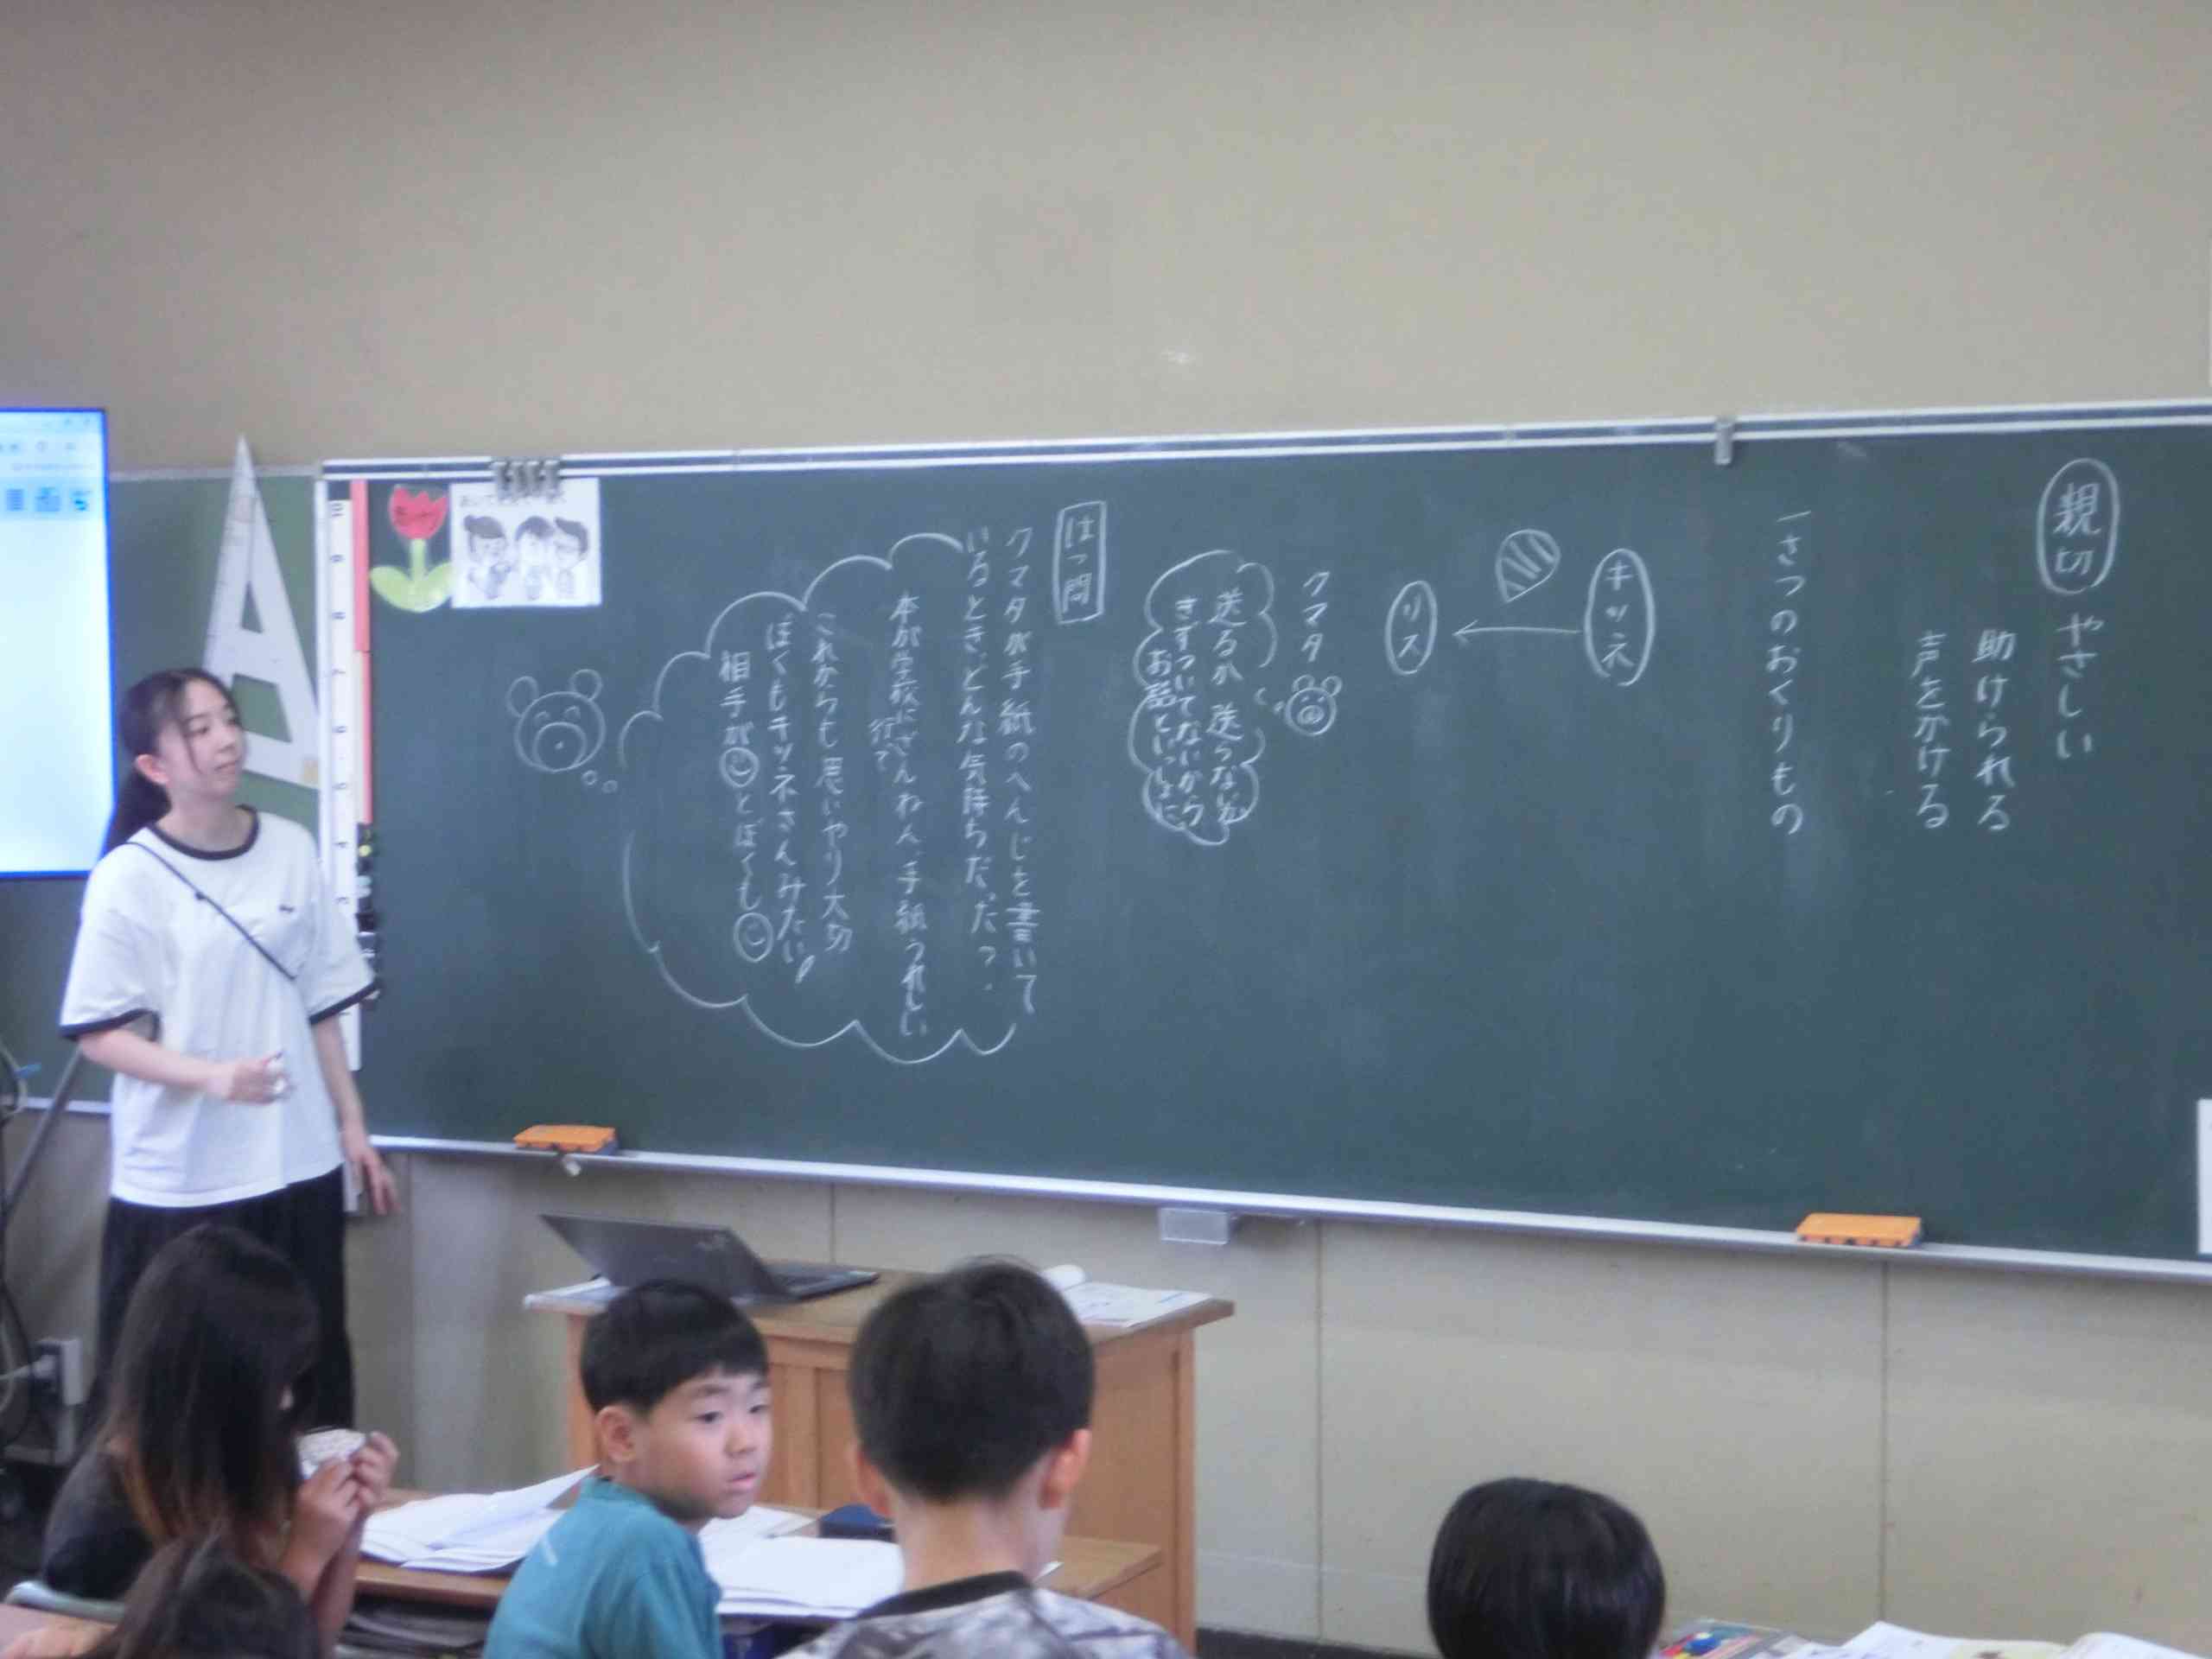 親切 やさしい
助けられる
声をかける
一さつのおくりもの
キツネ
リス
クマタ
送るか送らないか
きずついてないから
お話といっしょに
はつ問
クマタが手紙のへんじを書いて
いるとき、どんな気持ちだった。
本が学校にざんねん、手紙うれしい
行く
これからも思いやり大切
ぼくもキツネさんみたい!
相手が とぼくも